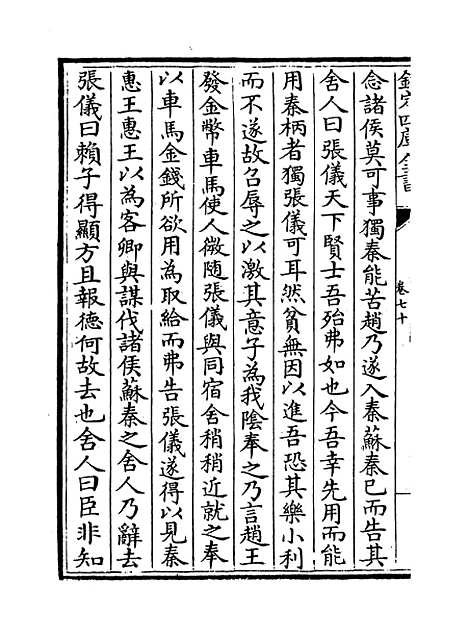 欽定四庫全書
卷七十
念諸侯莫可事獨秦能苦趙乃遂入秦蘇秦已而告其
舍人曰張儀天下賢士吾殆弗如也今吾幸先用而能
用秦柄者獨張儀可耳然貧無因以進吾恐其樂小利
而不遂故召辱之以激其意子為我陰奉之乃言趙王
發金幣車馬使人微隨張儀與同宿舍稍稍近就之奉
以車馬金錢所欲用為取給而弗告張儀遂得以見秦
惠王惠王以為客卿與謀伐諸侯蘇秦之舍人乃辭去
張儀曰賴子得顯方且報徳何故去也舍人曰臣非知